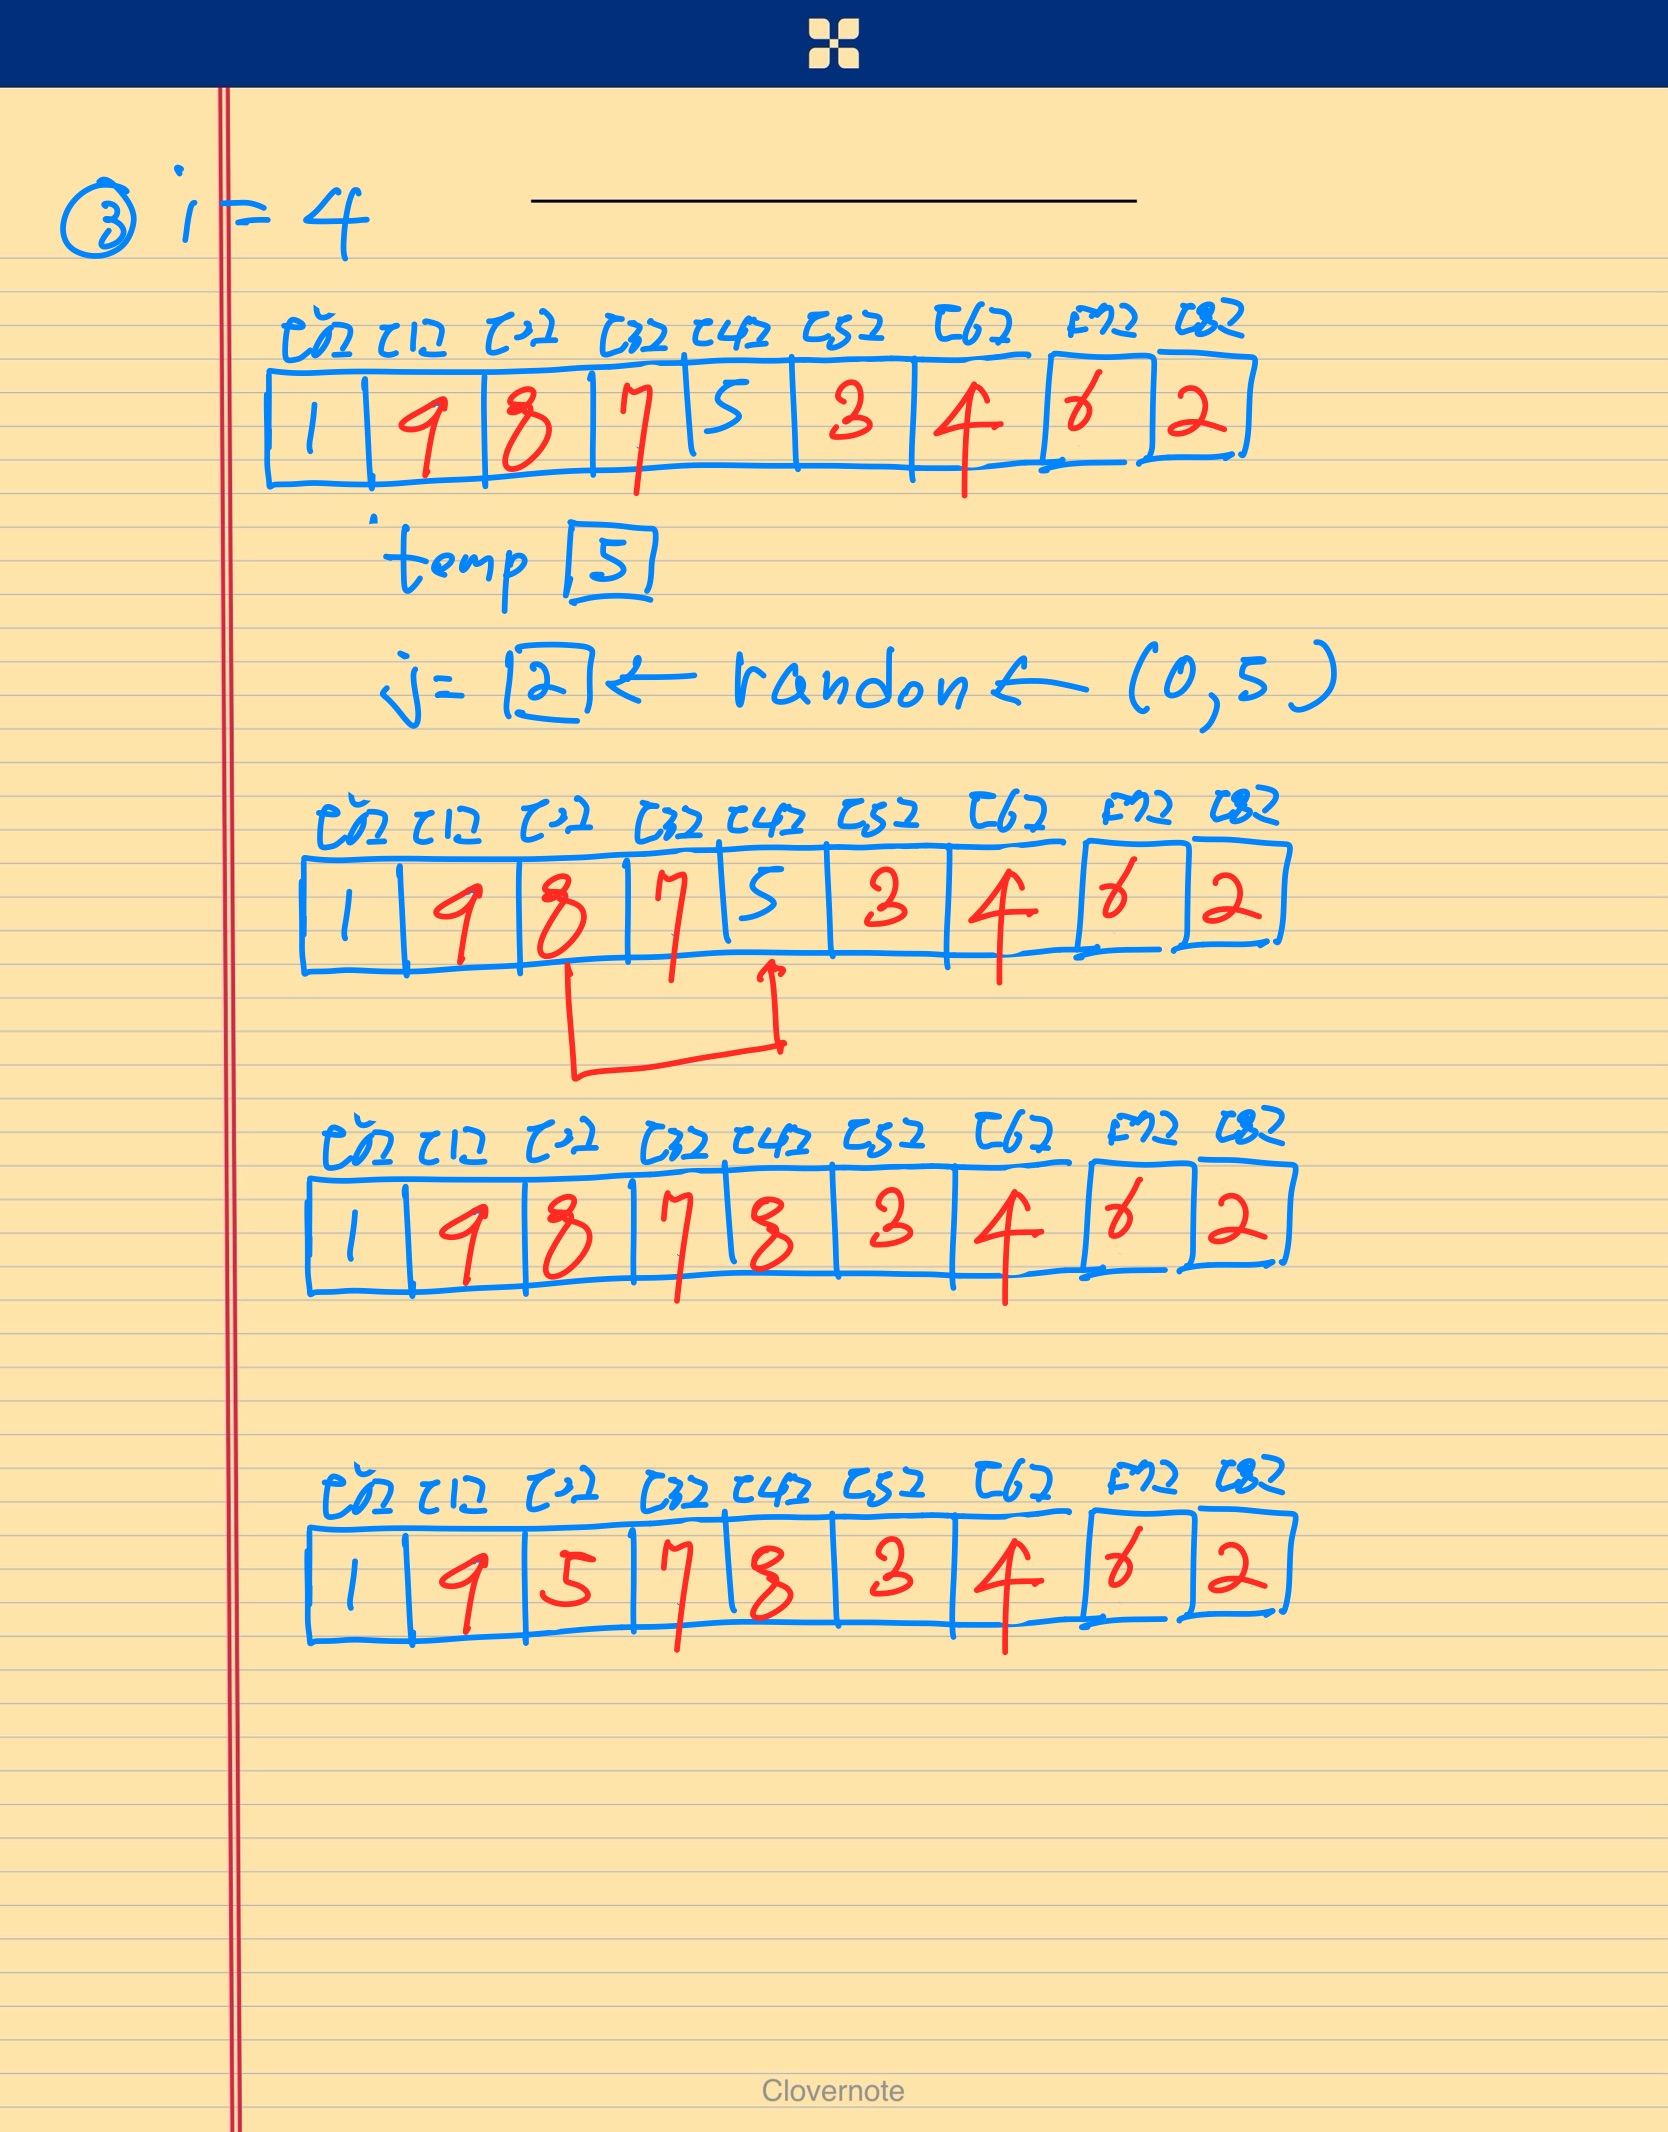 ③ i = 4
[0] [1] [2] [3] [4] [5] [6] [7] [8]
1 9 8 7 5 3 4 6 2
temp 5
j = 2 ← randon ← (0,5)
[0] [1] [2] [3] [4] [5] [6] [7] [8]
1 9 8 7 5 3 4 6 2
[0] [1] [2] [3] [4] [5] [6] [7] [8]
1 9 8 7 8 3 4 6 2
[0] [1] [2] [3] [4] [5] [6] [7] [8]
1 9 5 7 8 3 4 6 2
Clovernote